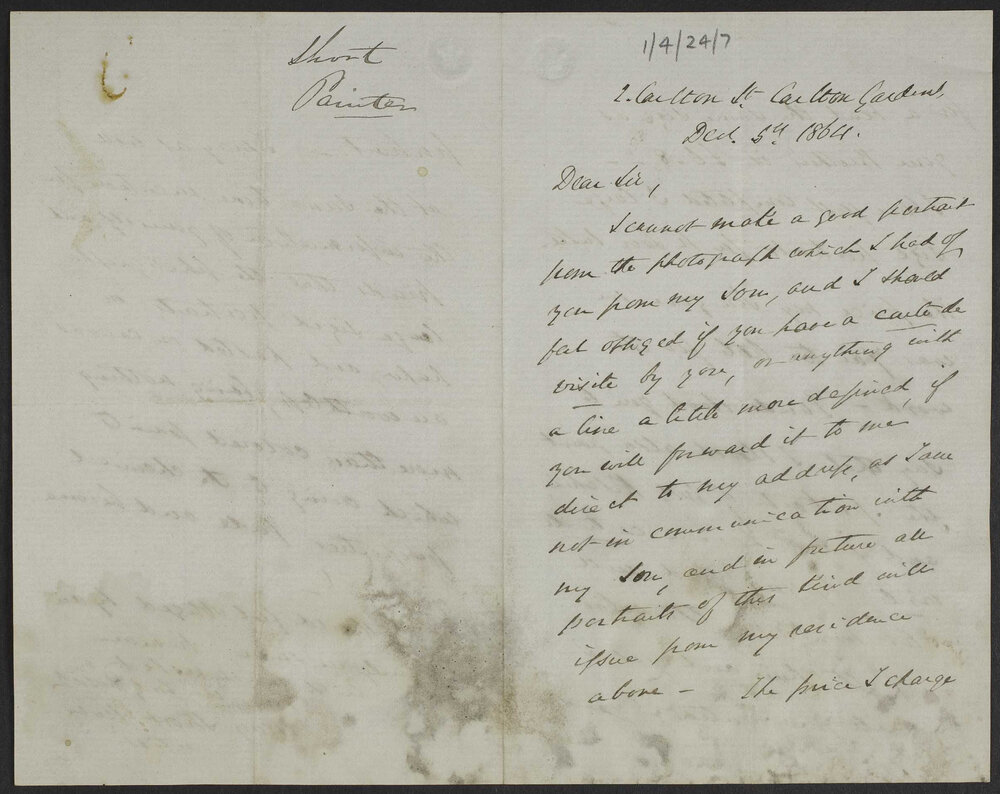 Short
Painter
1/4/24/7
2. Carlton St. Carlton Gardens
Decr. 5th 1864.
Dear Sir,
I cannot make a good portrait
from the photograph which I had of
you from my Son, and I should
feel obliged if you have a carte de
visite by you, or anything with
a line a little more defined, if
you will forward it to me
direct to my address, as I am
not in communication with
my Son, and in future all
portraits of this kind will
issue from my residence
above – The price I charge